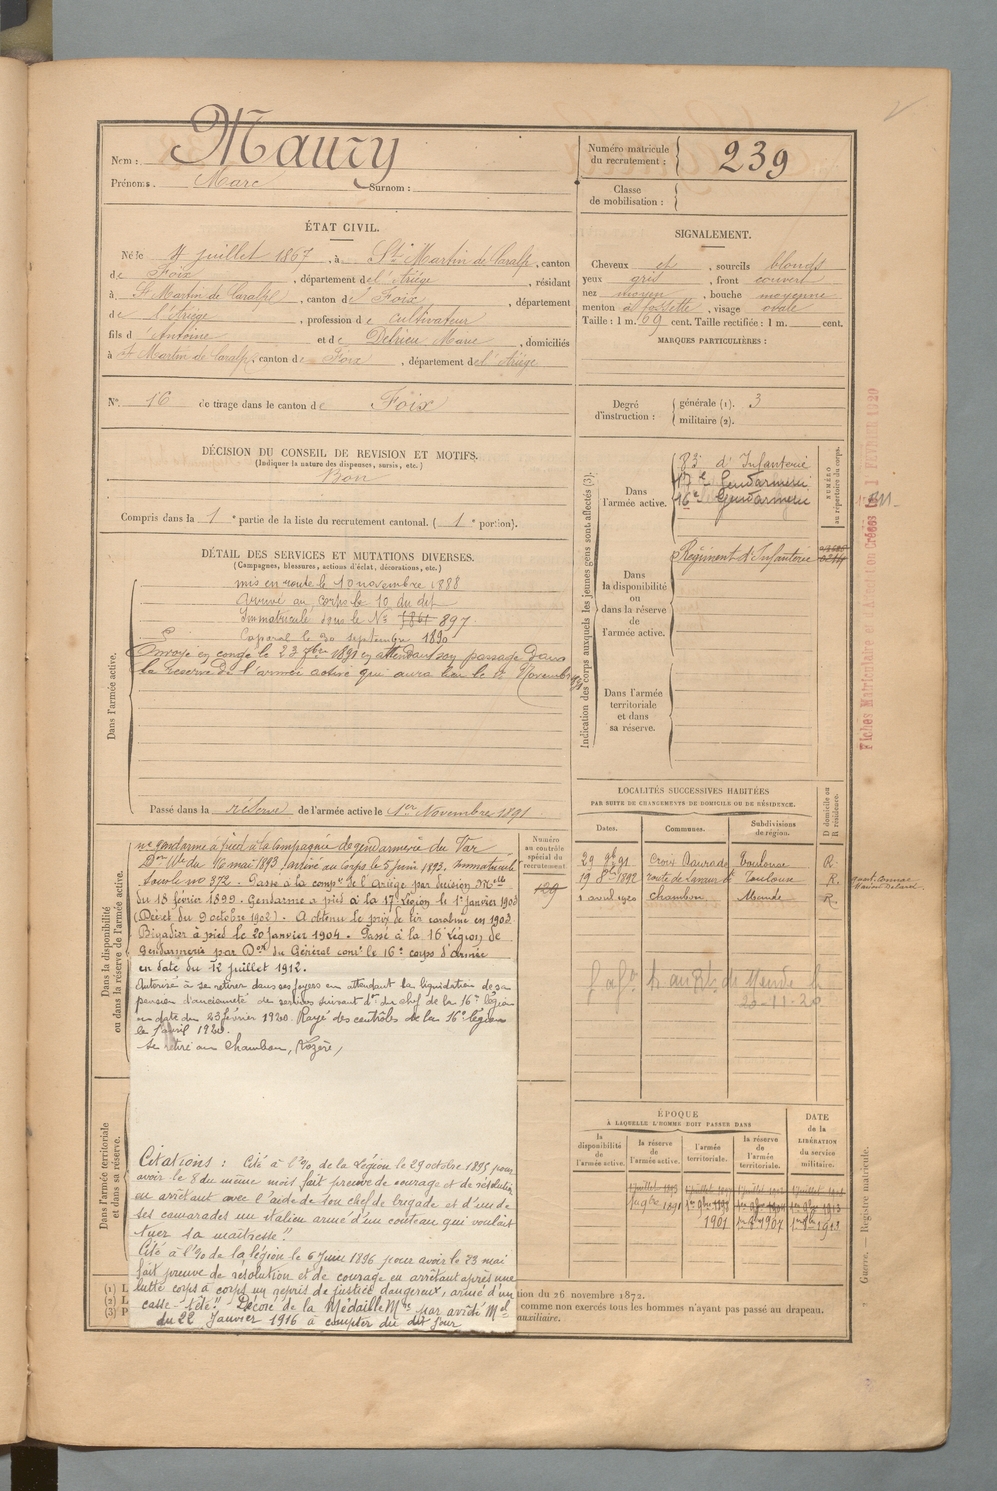 Nom : Maury
Prénoms. Marc Surnom :
Numéro matricule du recrutement : 239
Classe de mobilisation :
ÉTAT CIVIL.
Né le 4 juillet 1867, à St Martin de Caralp, canton
de Foix, département de l'Ariège, résidant
à St Martin de Caralp, canton de Foix, département
de l'Ariège, profession de cultivateur
fils d'Antoine et de Delrieu Marie, domiciliés
à St Martin de Caralp, canton de Foix, département de l'Ariège
SIGNALEMENT.
Cheveux et, sourcils blonds
yeux gris, front couvert
nez moyen, bouche moyenne
menton à fossette, visage ovale
Taille : 1 m. 69 cent. Taille rectifiée : 1 m. cent.
MARQUES PARTICULIÈRES :
N° 16 de tirage dans le canton de Foix
Degré d'instruction : générale (1). 3
militaire (2).
DÉCISION DU CONSEIL DE REVISION ET MOTIFS.
(Indiquer la nature des dispenses, sursis, etc.)
Bon
Compris dans la 1e partie de la liste du recrutement cantonal. ( 1e portion).
DÉTAIL DES SERVICES ET MUTATIONS DIVERSES.
(Campagnes, blessures, actions d'éclat, décorations, etc.)
Dans l'armée active.
mis en route le 10 novembre 1888
Arrivé au corps le 10 du dit
Immatriculé sous le No 897
Caporal le 30 septembre 1890
Envoyé en congé le 23 7bre 1891 en attendant son passage dans
la réserve de l'armée active qui aura lieu le 1er Novembre
Passé dans la réserve de l'armée active le 1er Novembre 1891
Indication des corps auxquels les jeunes gens sont affectés (3).
NUMÉRO au répertoire du corps.
Dans l'armée active.
83e d'Infanterie
17e Gendarmerie
16e Gendarmerie
Dans la disponibilité ou dans la réserve de l'armée active.
Régiment d'Infanterie
Dans l'armée territoriale et dans sa réserve.
Fiches Matriculaire et d'Affectation Créées le 1 FÉVRIER 1920
Dans la disponibilité ou dans la réserve de l'armée active.
Numéro au contrôle spécial du recrutement.
né gendarme à pied à la Compagnie de gendarmerie du Var
Don Mlle du 16 mai 1893, arrivé au Corps le 5 Juin 1893. Immatriculé
sous le no 372. Passé à la compie de l'Ariège par décision Mlle
du 18 février 1899. Gendarme à pied à la 17e Légion le 1er janvier 1903
(Décret du 9 octobre 1902). A obtenu le prix de tir carabine en 1903
Brigadier à pied le 20 janvier 1904. Passé à la 16e Légion de
Gendarmerie par Don du Général comt le 16e corps d'armée
en date du 12 juillet 1912.
Autorisé à se retirer dans ses foyers en attendant la liquidation de sa
pension d'ancienneté de services suivant don du chef de la 16e légion
en date du 23 février 1920. Rayé des contrôles de la 16e légion
le 1er avril 1920.
Se retire au Chambon, (Lozère)
LOCALITÉS SUCCESSIVES HABITÉES
PAR SUITE DE CHANGEMENTS DE DOMICILE OU DE RÉSIDENCE.
Dates. Communes. Subdivisions de région. D domicile ou R résidence.
29 9bre 91 Croix Daurade Toulouse R.
19 8bre 1892 route de Lavaur Toulouse R.
1 avril 1920 Chambon Mende R.
20-11-20
Dans l'armée territoriale et dans sa réserve.
Citations : Cité à l'% de la Légion le 29 octobre 1895 pour
avoir le 8 du même mois fait preuve de courage et de résolution
en arrêtant avec l'aide de son chef de brigade et d'un de
ses camarades un italien armé d'un couteau qui voulait
tuer sa maîtresse"
Cité à l'% de la légion le 6 Juin 1896 pour avoir le 23 mai
fait preuve de résolution et de courage en arrêtant après une
lutte corps à corps un repris de justice dangereux, armé d'un
casse-tête". Décoré de la Médaille Mre par avis Mel
du 22 Janvier 1916 à compter du dit jour
ÉPOQUE
À LAQUELLE L'HOMME DOIT PASSER DANS
la disponibilité de l'armée active.
la réserve de l'armée active.
l'armée territoriale.
la réserve de l'armée territoriale.
DATE de la LIBÉRATION du service militaire.
1er 9bre 1891
1901 1907 1913
(1) L
(2) L
(3) P
tion du 26 novembre 1872.
comme non exercés tous les hommes n'ayant pas passé au drapeau.
auxiliaire.
Guerre. — Registre matricule.